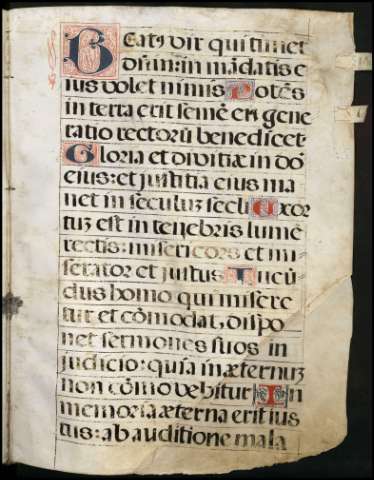 Beatꝰ vir qui timet
dñm: in mãdatis e
ius volet nimis Potẽs
in terra erit semẽ eiꝰ gene
ratio rectorũ benedicet᷑
Gloria et divitiæ in do
eius: et justitia eius ma
net in seculuʒ secli Exor
tuʒ est in tenebris lumẽ
rectis: misericors et mi
serator et justus Iucũ
dus homo qui misere
tur et cõmodat, dispo
net sermones suos in
judicio: quia in æternuʒ
non cõmovebitur In
memoria æterna erit ius
tus: ab auditione mala